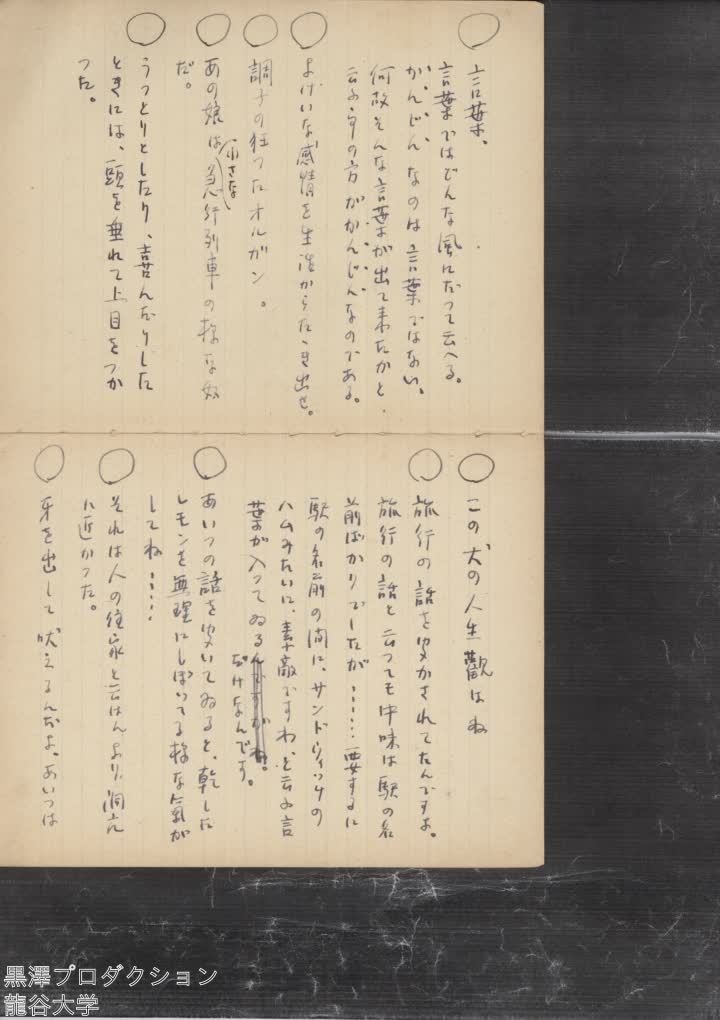 言葉、
言葉ではどんな風にだって云へる。
かんじんなのは言葉ではない、
何故そんな言葉が出て来たかと
云ふ事の方がかんじんなのである。
よけいな感情を生活からたゝき出せ。
調子の狂つたオルガン。
あの娘は小さな急行列車の様な奴
だ。
うつとりとしたり、喜んだりした
ときには、頭を垂れて上目をつか
つた。
この犬の人生觀はね
旅行の話を聞かされてたんですよ。
旅行の話と云つても中味は駅の名
前ばかりでしたが……要するに
駅の名前の間に、サンドウィッチの
ハムみたいに、素敵ですわ、と云ふ言
葉が入つてゐる
だけなんです。
あいつの話を聞いてゐると、乾した
レモンを無理にしぼつてる様な氣が
してね……
それは人の住家と云はんより、洞穴
に近かつた。
牙を出して吠えるんだよ。あいつは
黒澤プロダクション
龍谷大学